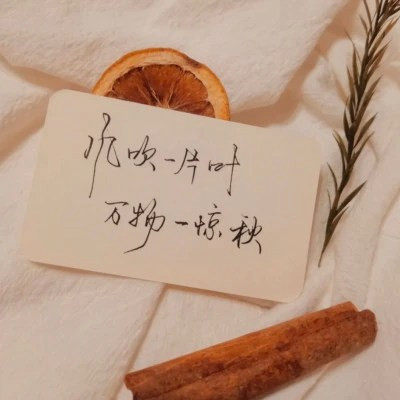 风吹一片叶
万物一惊秋